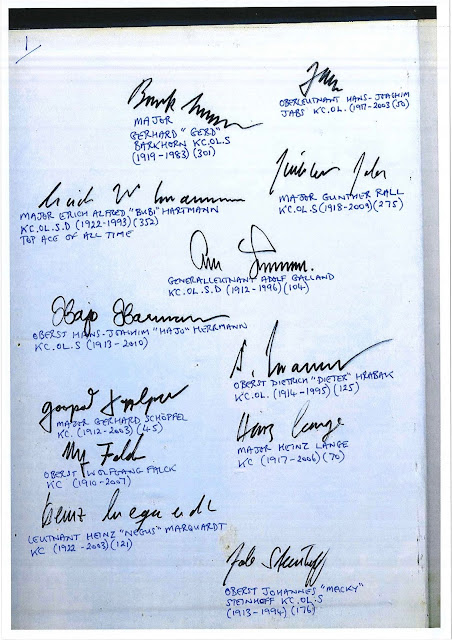 1
OBERLEUTNANT HANS-JOACHIM
JABS KC.OL. (1917-2003)(50)
MAJOR
GERHARD "GERD"
BARKHORN KC.OL.S
(1919-1983)(301)
MAJOR GUNTHER RALL
KC.OL.S (1918-2009)(275)
MAJOR ERICH ALFRED "BUBI" HARTMANN
KC.OL.S.D (1922-1993)(352)
TOP ACE OF ALL TIME
GENERALLEUTNANT ADOLF GALLAND
KC.OL.S.D (1912-1996)(104)
Hajo Herrmann
OBERST HANS-JOACHIM "HAJO" HERRMANN
KC.OL.S (1913-2010)
OBERST DIETRICH "DIETER" HRABAK
KC.OL. (1914-1995)(125)
MAJOR GERHARD SCHÖPFEL
KC. (1912-2003)(45)
Heinz Lange
MAJOR HEINZ LANGE
KC (1917-2006)(70)
OBERST WOLFGANG FALCK
KC (1910-2007)
LEUTNANT HEINZ "NEGUS" MARQUARDT
KC (1922-2003)(121)
OBERST JOHANNES "MACKY"
STEINHOFF KC.OL.S
(1913-1994)(176)